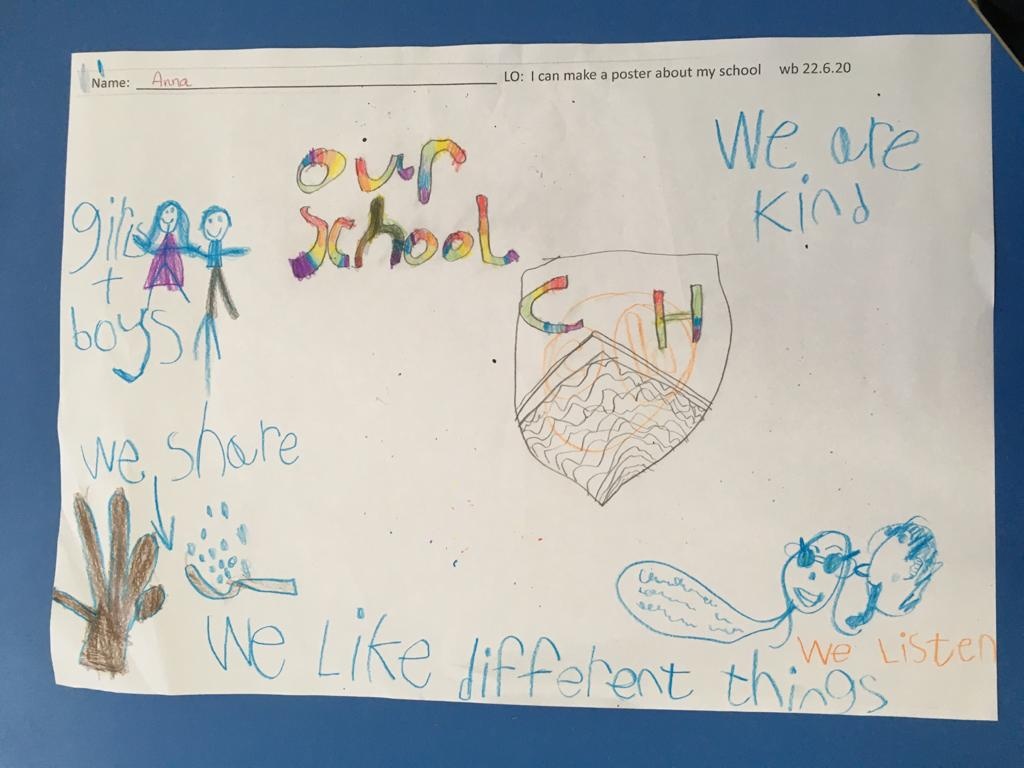 Name: Anna
LO: I can make a poster about my school wb 22.6.20
our
school
We are
kind
girls
+
boys
C H
we share
We listen
We like different things